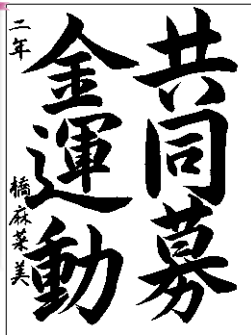 共同募
金運動
二年 橋麻菜美